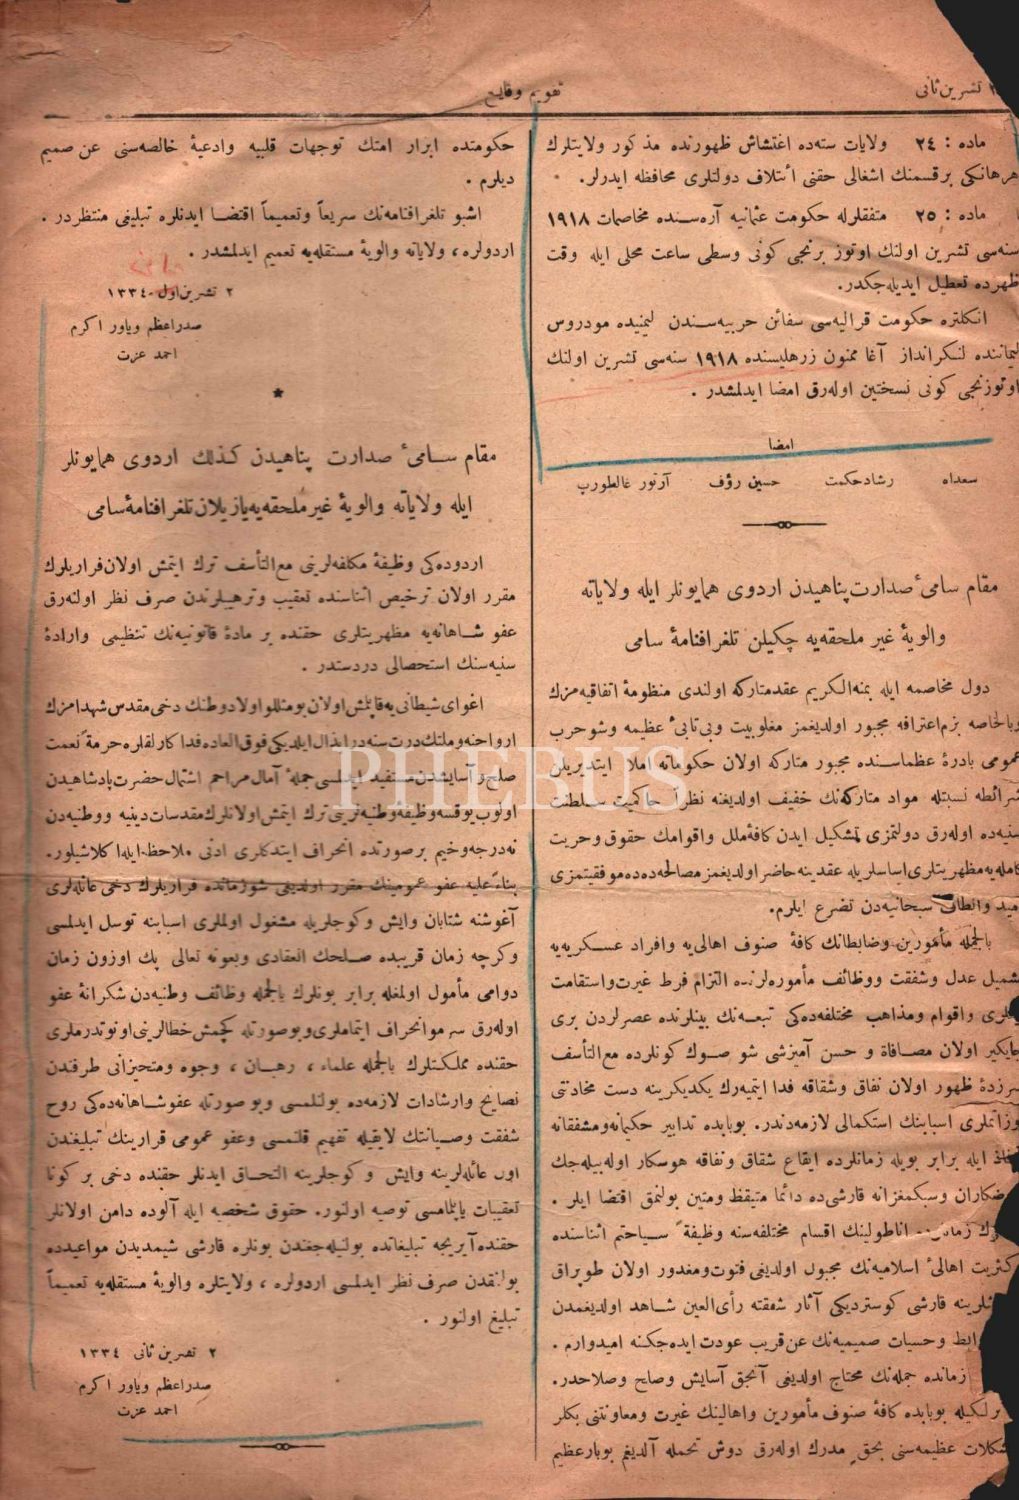 تشرین ثانی
تقویم وقایع
ماده : ٢٤ ولایات سته‌ده اغتشاش ظهورنده مذكور ولایتلرك
هرهانكی برقسمنك اشغالی حقنی ائتلاف دولتلری محافظه ایدرلر.
ماده : ٢٥ متفقلرله حكومت عثمانیه آره‌سنده مخاصمات ١٩١٨
سنه‌سی تشرین اولنك اوتوز برنجی كونی وسطی ساعت محلی ایله وقت
ظهرده تعطیل ایدیله‌جكدر.
انكلتره حكومت قرالیه‌سی سفائن حربیه‌سندن لیمنیده مودروس
لیماننده لنكرانداز آغا ممنون زرهلیسنده ١٩١٨ سنه‌سی تشرین اولنك
اوتوزنجی كونی نسختین اوله‌رق امضا ایدلمشدر .
امضا
سعدالله رشاد حكمت حسین رؤف آرتور غالطورپ
مقام سامیٔ صدارت‌پناهیدن اردوی همایونلر ایله ولایاته
والویهٔ غیر ملحقه‌یه چكیلن تلغرافنامهٔ سامی
دول مخاصمه ایله بمنه الكریم عقد متاركه اولندی منظومهٔ اتفاقیه‌مزك
وبالخاصه بزم اعترافه مجبور اولدیغمز مغلوبیت وبی‌تابیٔ عظیمه وشو حرب
عمومی بادرهٔ عظماسنده مجبور متاركه اولان حكوماته املا ایتدیریلن
شرائطه نسبتله مواد متاركه‌نك خفیف اولدیغنه نظراً حاكمیت سلطنت
سنیه‌ده اوله‌رق دولتمزی تشكیل ایدن كافهٔ ملل واقوامك حقوق وحریت
كامله‌یه مظهریتلری اساسلریله عقدینه حاضر اولدیغمز مصالحه‌ده‌ده موفقیتمزی
امید والطاف سبحانیه‌دن تضرع ایلرم.
بالجمله مأمورین وضابطانك كافهٔ صنوف اهالی‌یه وافراد عسكریه‌یه
تشمیل عدل وشفقت ووظائف مأموره‌لرنده التزام فرط غیرت واستقامت
واقوام ومذاهب مختلفه‌ده‌كی تبعه‌نك بینلرنده عصرلردن بری
جایكیر اولان مصافاة و حسن آمیزشی شو صوك كونلرده مع التأسف
سرزدهٔ ظهور اولان نفاق وشقاقه فدا ایتمیه‌رك یكدیكرینه دست مخادنتی
اوزاتملری اسبابنك استكمالی لازمه‌دندر. بوبابده تدابیر حكیمانه ومشفقانه
اتخاذ ایله برابر بویله زمانلرده ایقاع شقاق ونفاقه هوسكار اوله‌بیله‌جك
وسبكمغزانه قارشی‌ده دائما متیقظ ومتین بولنمق اقتضا ایلر .
اناطولینك اقسام مختلفه‌سنه وظیفةً سیاحتم اثناسنده
اكثریت اهالیٔ اسلامیه‌نك مجبول اولدیغی فتوت ومغدور اولان طوپراق
قارشی كوستردیكی آثار شفقته رأی العین شاهد اولدیغمدن
وحسیات صمیمیه‌نك عن قریب عودت ایده‌جكنه امیدوارم .
زمانده جمله‌نك محتاج اولدیغی آنجق آسایش وصلح وصلاحدر.
بوبابده كافهٔ صنوف مأمورین واهالینك غیرت ومعاونتنی بكلر
مشكلات عظیمه‌سنی بحق مدرك اوله‌رق دوش تحمله آلدیغم بوبار عظیم
حكومتده ابرار امتك توجهات قلبیه وادعیهٔ خالصه‌سنی عن صمیم
دیلرم .
اشبو تلغرافنامه‌نك سریعاً وتعمیماً اقتضا ایدنلره تبلیغی منتظردر .
اردولره، ولایاته والویهٔ مستقله‌یه تعمیم ایدلمشدر .
٢ تشرین اول ١٣٣٤
صدراعظم ویاور اكرم
احمد عزت
مقام سامیٔ صدارت پناهیدن كذلك اردوی همایونلر
ایله ولایاته والویهٔ غیر ملحقه‌یه یازیلان تلغرافنامهٔ سامی
اردوده‌كی وظیفهٔ مكلفه‌لرینی مع التأسف ترك ایتمش اولان فراریلرك
مقرر اولان ترخیص اثناسنده تعقیب وترهیبلرندن صرف نظر اولنه‌رق
عفو شاهانه‌یه مظهریتلری حقنده بر مادهٔ قانونیه‌نك تنظیمی وارادهٔ
سنیه‌سنك استحصالی دردستدر .
اغوای شیطانی‌یه قاپلمش اولان بومثللو اولاد وطنك دخی مقدس شهدامزك
ارواحنه وملتك درت سنه‌در ابذال ایلدیكی فوق العاده فداكارلقلره حرمةً نعمت
صلح وآسایشدن مستفید ایدلمسی جملهٔ آمال مراحم اشتمال حضرت پادشاهیدن
اولوب یوقسه وظیفهٔ وطنیه‌لرینی ترك ایتمش اولانلرك مقدسات دینیه ووطنیه‌دن
نه درجه وخیم برصورتده انحراف ایتدكلری ادنی ملاحظه ایله اكلاشیلور.
بناءً علیه عفو عمومینك مقرر اولدیغی شو زمانده فراریلرك دخی عائله‌لری
آغوشنه شتابان وایش وكوجلریله مشغول اولملری اسبابنه توسل ایدلمسی
وكرچه زمان قریبده صلحك انعقادی وبعونه تعالی پك اوزون زمان
دوامی مأمول اولمغله برابر بونلرك بالجمله وظائف وطنیه‌دن شكرانهٔ عفو
اوله‌رق سرمو انحراف ایتماملری وبوصورتله كچمش خطالرینی اونوتدرملری
حقنده مملكتلرك بالجمله علماء ، رهبان ، وجوه ومتحیزانی طرفندن
نصایح وارشادات لازمه‌ده بولنلمسی وبوصورتله عفو شاهانه‌ده‌كی روح
شفقت وصیانتك لایقیله تفهیم قلنمسی وعفو عمومی قرارینك تبلیغندن
اول عائله‌لرینه وایش و كوجلرینه التحاق ایدنلر حقنده دخی بر كونا
تعقیبات یاپلمامسی توصیه اولنور. حقوق شخصیه ایله آلوده دامن اولانلر
حقنده آیریجه تبلیغاتده بولنیله‌جغندن بونلره قارشی شیمدیدن مواعیدده
بولنمقدن صرف نظر ایدلمسی اردولره ، ولایتلره والویهٔ مستقله‌یه تعمیماً
تبلیغ اولنور .
٢ تشرین ثانی ١٣٣٤
صدراعظم ویاور اكرم
احمد عزت
PHEBUS